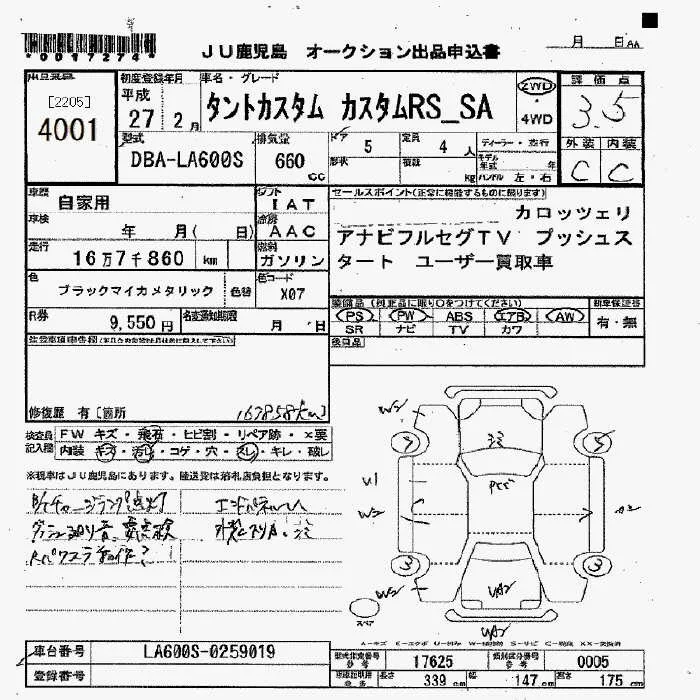 *0017274*
JU鹿児島 オークション出品申込書
月 日 AA
[2205]
4001
初度登録年月
平成
27 2月
車名・グレード
タントカスタム カスタムRS_SA
2WD
・
4WD
評価点
3.5
外装 内装
C C
型式
DBA-LA600S
排気量
660
cc
ドア
5
形状
定員
4 人
積載
kg
ディーラー・並行
モデル年式 年
ハンドル 左・右
車歴
自家用
シフト
IAT
車検
年 月( 日)
冷房
AAC
走行
16万7千860 km
燃料
ガソリン
色
ブラックマイカメタリック
色替
色コード
X07
R券
9,550円
名変通知期限
月 日
セールスポイント(正常に機能するものに限ります)
カロッツェリ
アナビフルセグTV プッシュス
タート ユーザー買取車
装備品(純正品に限り〇をつけてください)
PS PW ABS エアB AW
SR ナビ TV カワ
新車保証書
有・無
後日品
修復歴 有[箇所
167858km]
検査員
記入欄
FW キズ・飛石・ヒビ割・リペア跡・×要
内装 キズ・汚レ・コゲ・穴・スレ・キレ・破レ
※税率はJU鹿児島にあります。陸送費は落札店負担となります。
W2
3
5
U1
W2
A2
3
3
W2
UA2
UA2
スペア
A-キズ E-エクボ U-凹み W-補修跡 S-サビ C-腐蝕 XX-交換済
車台番号
LA600S-0259019
登録番号
型式指定番号
参考
17625
類別区分番号
参考
0005
長さ
339 cm
幅
147 cm
高さ
175 cm